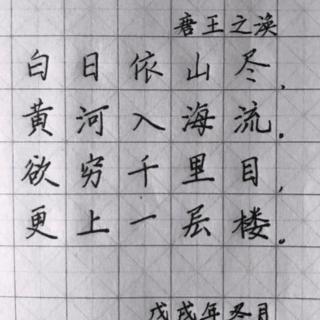 唐王之涣
白日依山尽，
黄河入海流。
欲穷千里目，
更上一层楼。
戊戌年冬月